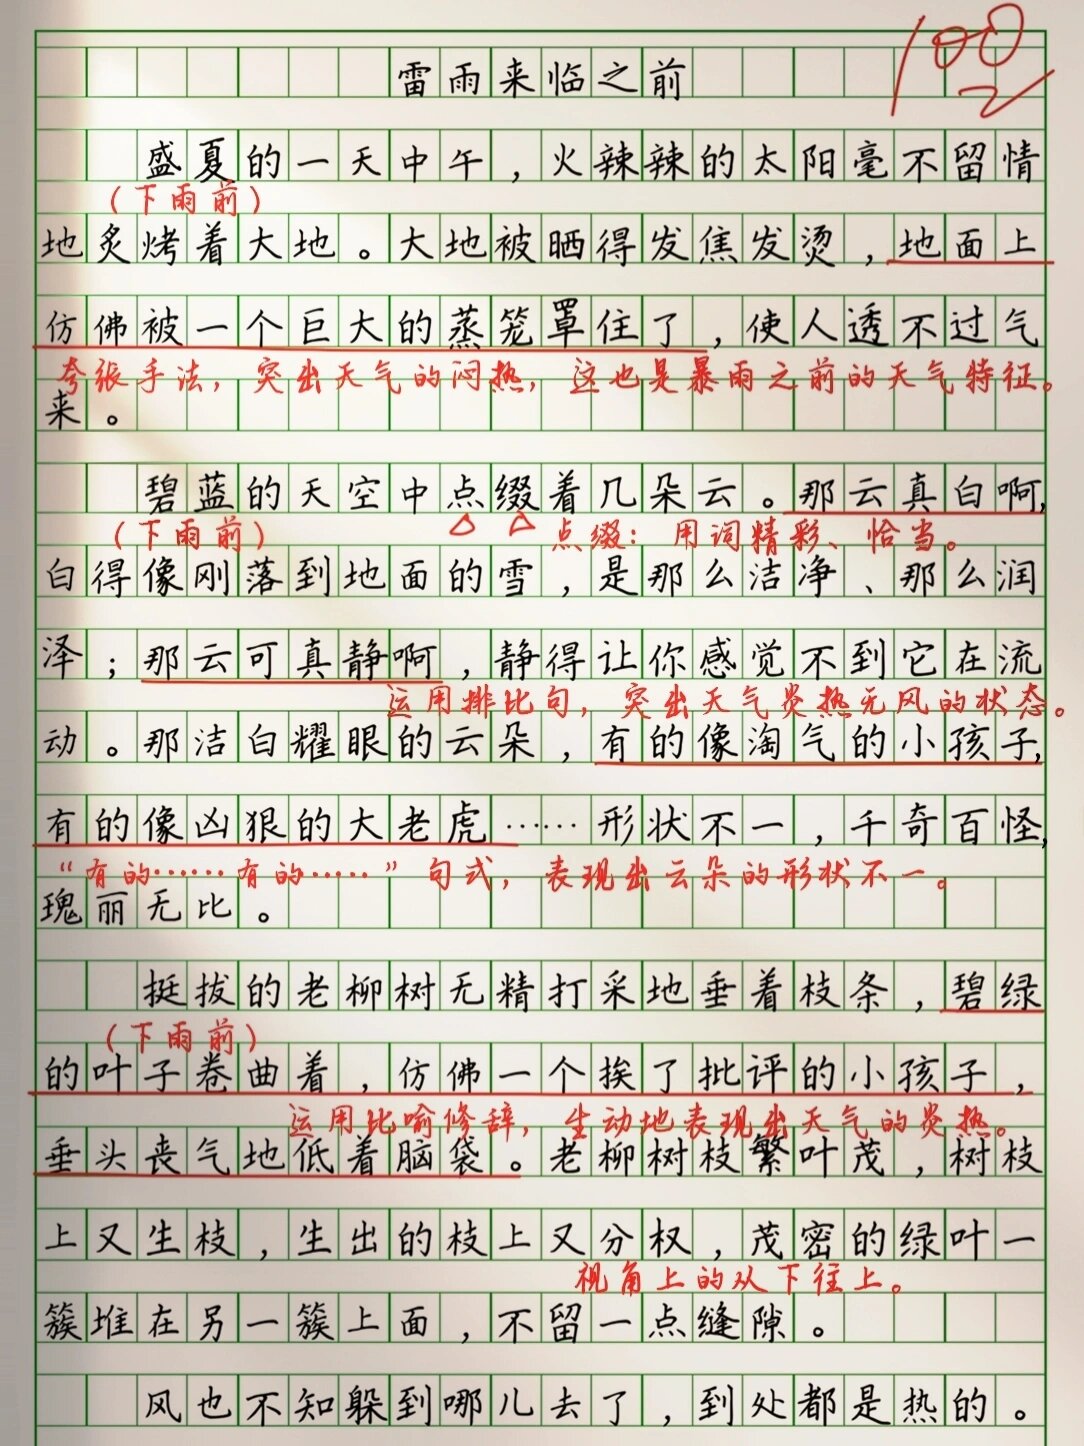 100
雷雨来临之前
盛夏的一天中午，火辣辣的太阳毫不留情
（下雨前）
地炙烤着大地。大地被晒得发焦发烫，地面上
仿佛被一个巨大的蒸笼罩住了，使人透不过气
夸张手法，突出天气的闷热，这也是暴雨之前的天气特征。
来。
碧蓝的天空中点缀着几朵云。那云真白啊，
（下雨前）
点缀：用词精彩、恰当。
白得像刚落到地面的雪，是那么洁净、那么润
泽；那云可真静啊，静得让你感觉不到它在流
运用排比句，突出天气炎热无风的状态。
动。那洁白耀眼的云朵，有的像淘气的小孩子，
有的像凶狠的大老虎……形状不一，千奇百怪，
“有的……有的……”句式，表现出云朵的形状不一。
瑰丽无比。
挺拔的老柳树无精打采地垂着枝条，碧绿
（下雨前）
的叶子卷曲着，仿佛一个挨了批评的小孩子，
运用比喻修辞，生动地表现出天气的炎热。
垂头丧气地低着脑袋。老柳树枝繁叶茂，树枝
上又生枝，生出的枝上又分杈，茂密的绿叶一
视角上的从下往上。
簇堆在另一簇上面，不留一点缝隙。
风也不知躲到哪儿去了，到处都是热的。